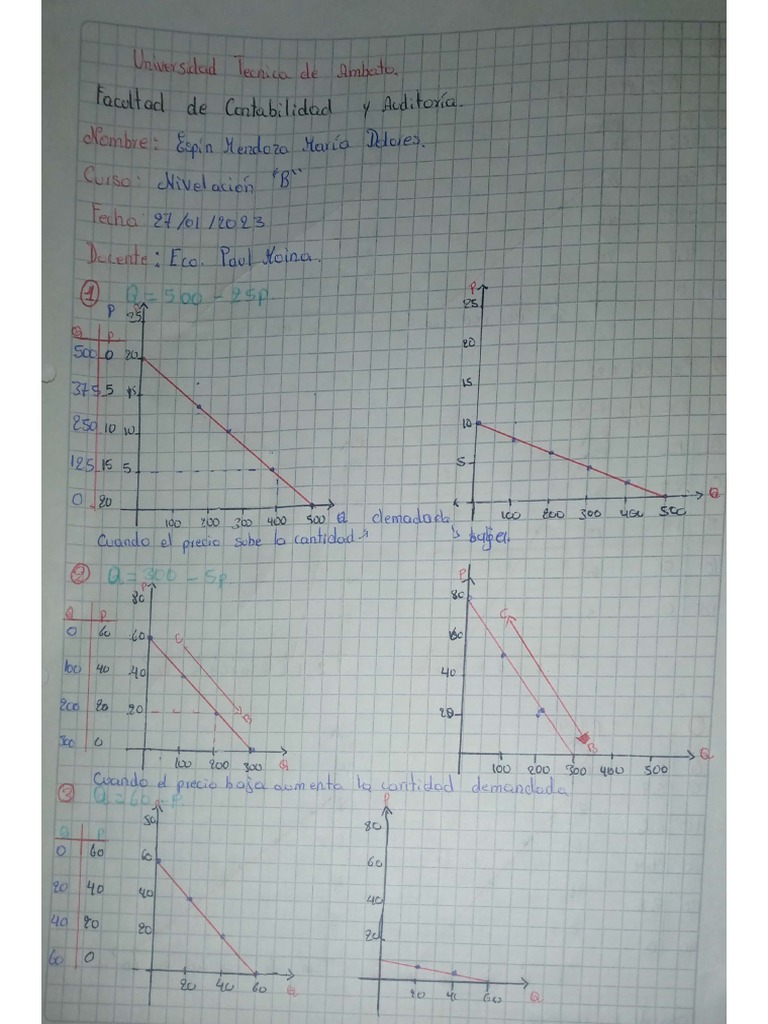 Universidad Tecnica de Ambato.
Facultad de Contabilidad y Auditoría.
Nombre: Espin Mendoza María Dolores.
Curso: Nivelación "B"
Fecha 27/01/2023
Docente: Eco. Paul Moina.
① Q = 500 - 25p.
P
25
Q P
500 0 20
375 5 15
250 10 10
125 15 5
0 20
100 200 300 400 500 Q demadada
P
25
20
15
10
5
100 200 300 400 500 Q
Cuando el precio sube la cantidad baja.
② Q = 300 - 5p
P
80
Q P
0 60 60
100 40 40
200 20 20
300 0
C
B
100 200 300 Q
P
80
60
40
20
C
B
100 200 300 400 500 Q
Cuando el precio baja aumenta la cantidad demandada
③ Q = 60 - P
P
80
Q P
0 60 60
20 40 40
40 20 20
60 0
20 40 60 Q
P
80
60
40
20
20 40 60 Q